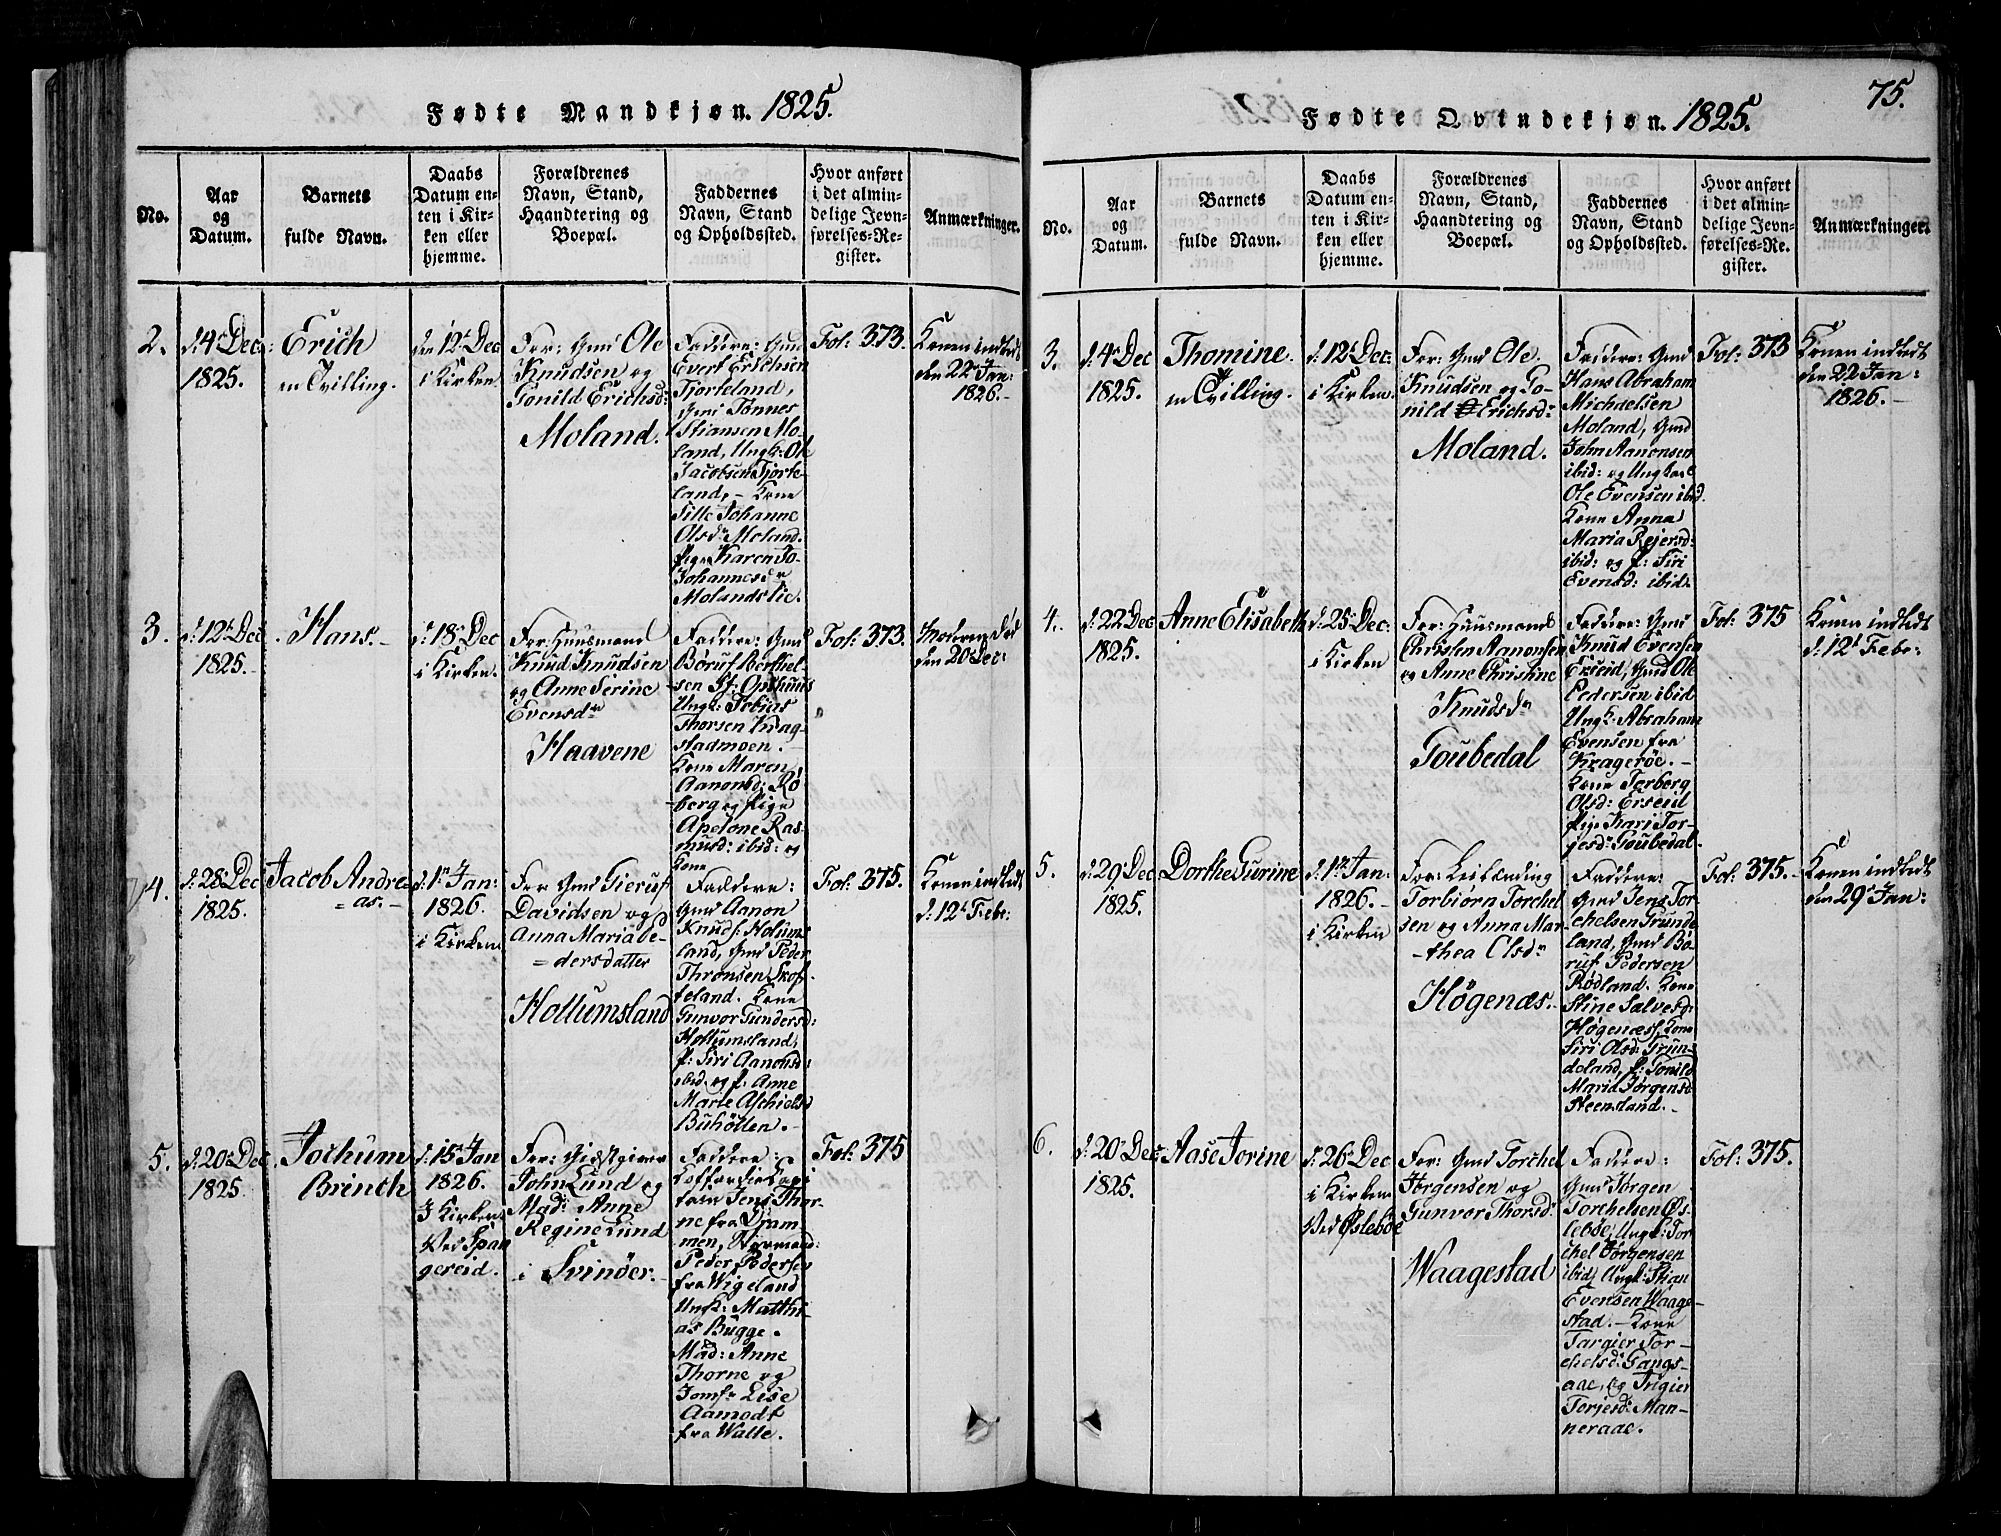 Fødte Mandkjøn. 1825.
No.
Aar
og
Datum.
Barnets
fulde Navn.
Daabs
Datum en-
ten i Kir-
ken eller
hjemme.
Forældrenes
Navn, Stand,
Haandtering og
Boepæl.
Faddernes
Navn, Stand
og Opholdssted.
Hvor anført
i det almin-
delige Jevn-
førelses-Re-
gister.
Anmærkninger.
2.
d: 4de Dec:
1825.
Erich
en Tvilling.
den 12te Dec
i Kirken.
For: Gmd Ole
Knudsen og
Gonild Erichsd:
Moland.
Faddere: Gmd
Evert Erichsen
Tjorteland,
Gmd Tønnes
Stiansen Mo-
land, Ungk: Ole
Jacobsen Tjorte-
land, - Kone
Sille Johanne
Olsdr Moland.
Pige Karen Jo-
Johannesdr
Molandslie.
Fol: 373.
Konen indledt
den 22de Jan:
1826.-
3.
d: 12te Dec
1825.-
Hans.-
d: 18de Dec
i Kirken.
For: Huusmand
Knud Knudsen
og Anne Serine
Evensdr
Haavene
Faddere: Gmd
Børuf Berthel-
sen St: Osthuus
Ungk: Tobias
Thorsen Krag-
stadmoen.
Kone Maren
Aanonsd: Rø-
berg og Pige
Apelone Ras-
musd: ibid: og
Kone
Fol: 373.
Moderen død
den 20 Dec:
4.
d: 28de Dec
1825.
Jacob Andre-
= as.-
d: 1ste Jan:
1826.
i Kirken
For Gmd Gieruf
Davidsen og
Anna Maria Pe-
= dersdatter
Hollumsland
Faddere:
Gmd Aanon
Knuds: Holums-
land, Gmd Peder
Thronsen Skof-
teland. Kone
Gunvor Gundersd:
Hollumsland,
P: Siri Aanonsd:
ibid og P: Anne
Marte Aschielsd
Buhölten.-
Fol: 375.
Konen indledt
d: 12te Febr:
5.
d: 20de Dec
1825
Jochum
Brinch
d: 15de Jan
1826.
I Kirken
Ved Span
gereid.
For: Giæstgiver
John Lund og
Mad: Anne
Regine Lund
i Svinöer.-
Faddere:
Coffardie Capi
tain Jens Thor-
ne fra Dram-
men, Styrmand:
Peder Pedersen
fra Wigeland
Ungk: Matthi-
as Bugge.
Mad: Anne
Thorne og
Jomfr Lise
Aamodt
fra Walle.
Fol: 375
75.
Fødte Qvindekjøn. 1825.
No.
Aar
og
Datum.
Barnets
fulde Navn.
Daabs
Datum en-
ten i Kir-
ken eller
hjemme.
Forældrenes
Navn, Stand,
Haandtering og
Boepæl.
Faddernes
Navn, Stand
og Opholdssted.
Hvor anført
i det almin-
delige Jevn-
førelses-Re-
gister.
Anmærkninger.
3.
d: 4de Dec
1825.
Thomine.
en Tvilling.
d: 12te Dec:
i Kirken.
For: Gmd Ole
Knudsen og Go-
nild Erichsd:
Moland.
Faddere: Gmd
Hans Abraham
Michaelsen
Moland, Gmd
John Aanonsen
ibid: og Ungkarl
Ole Evensen ibid.
Kone Anna
Maria Rejersd:
ibid: og P: Siri
Evensd: ibid.
Fol: 373
Konen indledt
den 22 Jan:
1826.-
4.
d: 22 Dec
1825.
Anne Elisabeth
d: 25de Dec:
i Kirken
For: Huusmand
Christen Aanonsen
og Anne Christine
Knudsdr
Goubedal
Faddere: Gmd
Knud Evensen
Erseid, Gmd Ole
Pedersen ibid
Ungk: Abraham
Evensen fra
Kragerøe.-
Kone Torberg
Olsd: Erseid
Pige Kari Tor-
jesdr Goubedal.
Fol: 375
Konen indledt
d: 12te Febr:
5.
d: 29de Dec
1825.
Dorthe Gurine
d: 1ste Jan:
1826.-
i Kirken
For: Leilænding
Torbiørn Torchel
sen og Anna Mar-
-thea Olsdr
Høgenæs.-
Faddere:
Gmd Jens Tor-
chelsen Grunde-
land, Gmd Bø-
ruf Pedersen
Rødland. Kone
Stine Salvesd:
Høgenæs, Kone
Siri Olsd: Grun-
deland, P: Gonild
Maria Jørgensd
Steensland.-
Fol: 375.-
Konen indledt
den 29de Jan:
6.
d: 20de Dec:
1825.
Aase Jorine
d: 26de Dec
i Kirken
Ved Øslebøe
For: Gmd Torchel
Jörgensen og
Gunvor Thorsd:
Waagestad
Faddere:
Gmd Jørgen
Torchelsen Øs-
lebøe, Ungk: Tor-
chel Jørgensen
ibid, Ungk: Stian
Evensen Waage-
stad.- Kone
Targier Tor-
chelsd: Gangs-
aae, og Trigier
Torjesd: Man-
neraae.
Fol: 375.